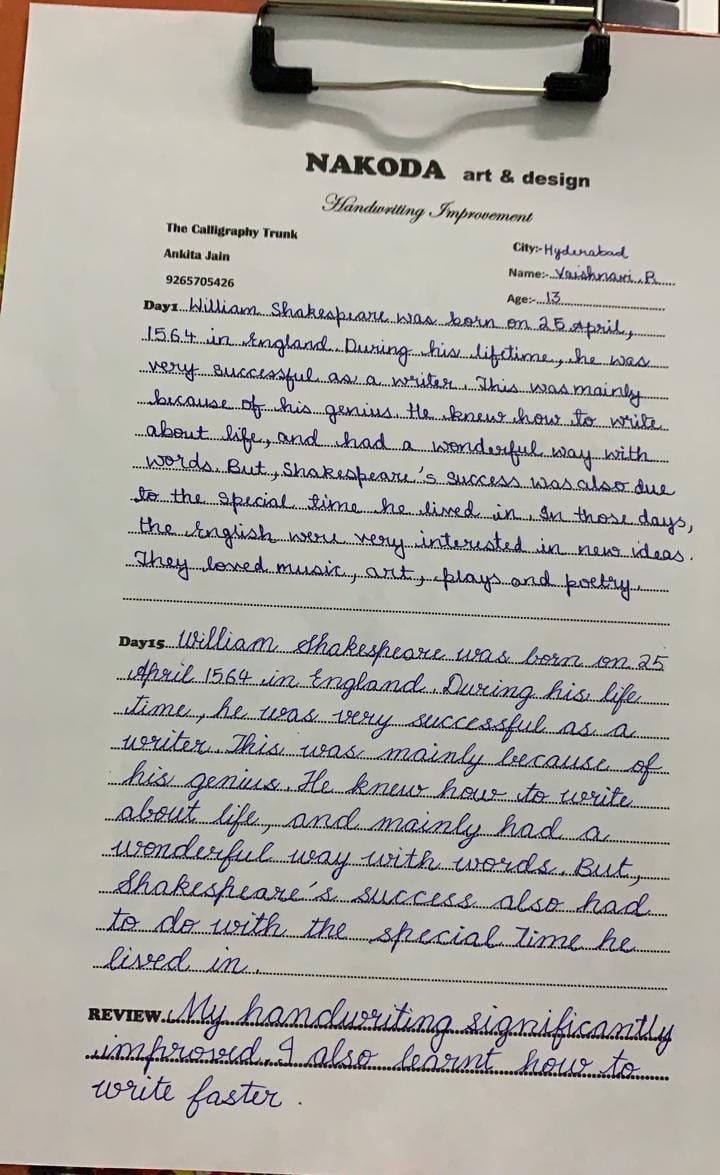 NAKODA art & design
Handwriting Improvement
The Calligraphy Trunk
Ankita Jain
9265705426
City:- Hyderabad
Name:- Vaishnavi. R
Age:- 13
Day1 William Shakespeare was born on 25 April,
1564 in England. During his lifetime, he was
very successful as a writer. This was mainly
because of his genius. He knew how to write
about life, and had a wonderful way with
words. But, Shakespeare's success was also due
to the special time he lived in. In those days,
the English were very interested in new ideas.
They loved music, art, plays and poetry.
Day15 William Shakespeare was born on 25
April 1564 in England. During his life
time, he was very successful as a
writer. This was mainly because of
his genius. He knew how to write
about life, and mainly had a
wonderful way with words. But,
Shakespeare's success also had
to do with the special time he
lived in.
REVIEW My handwriting significantly
improved. I also learnt how to
write faster.